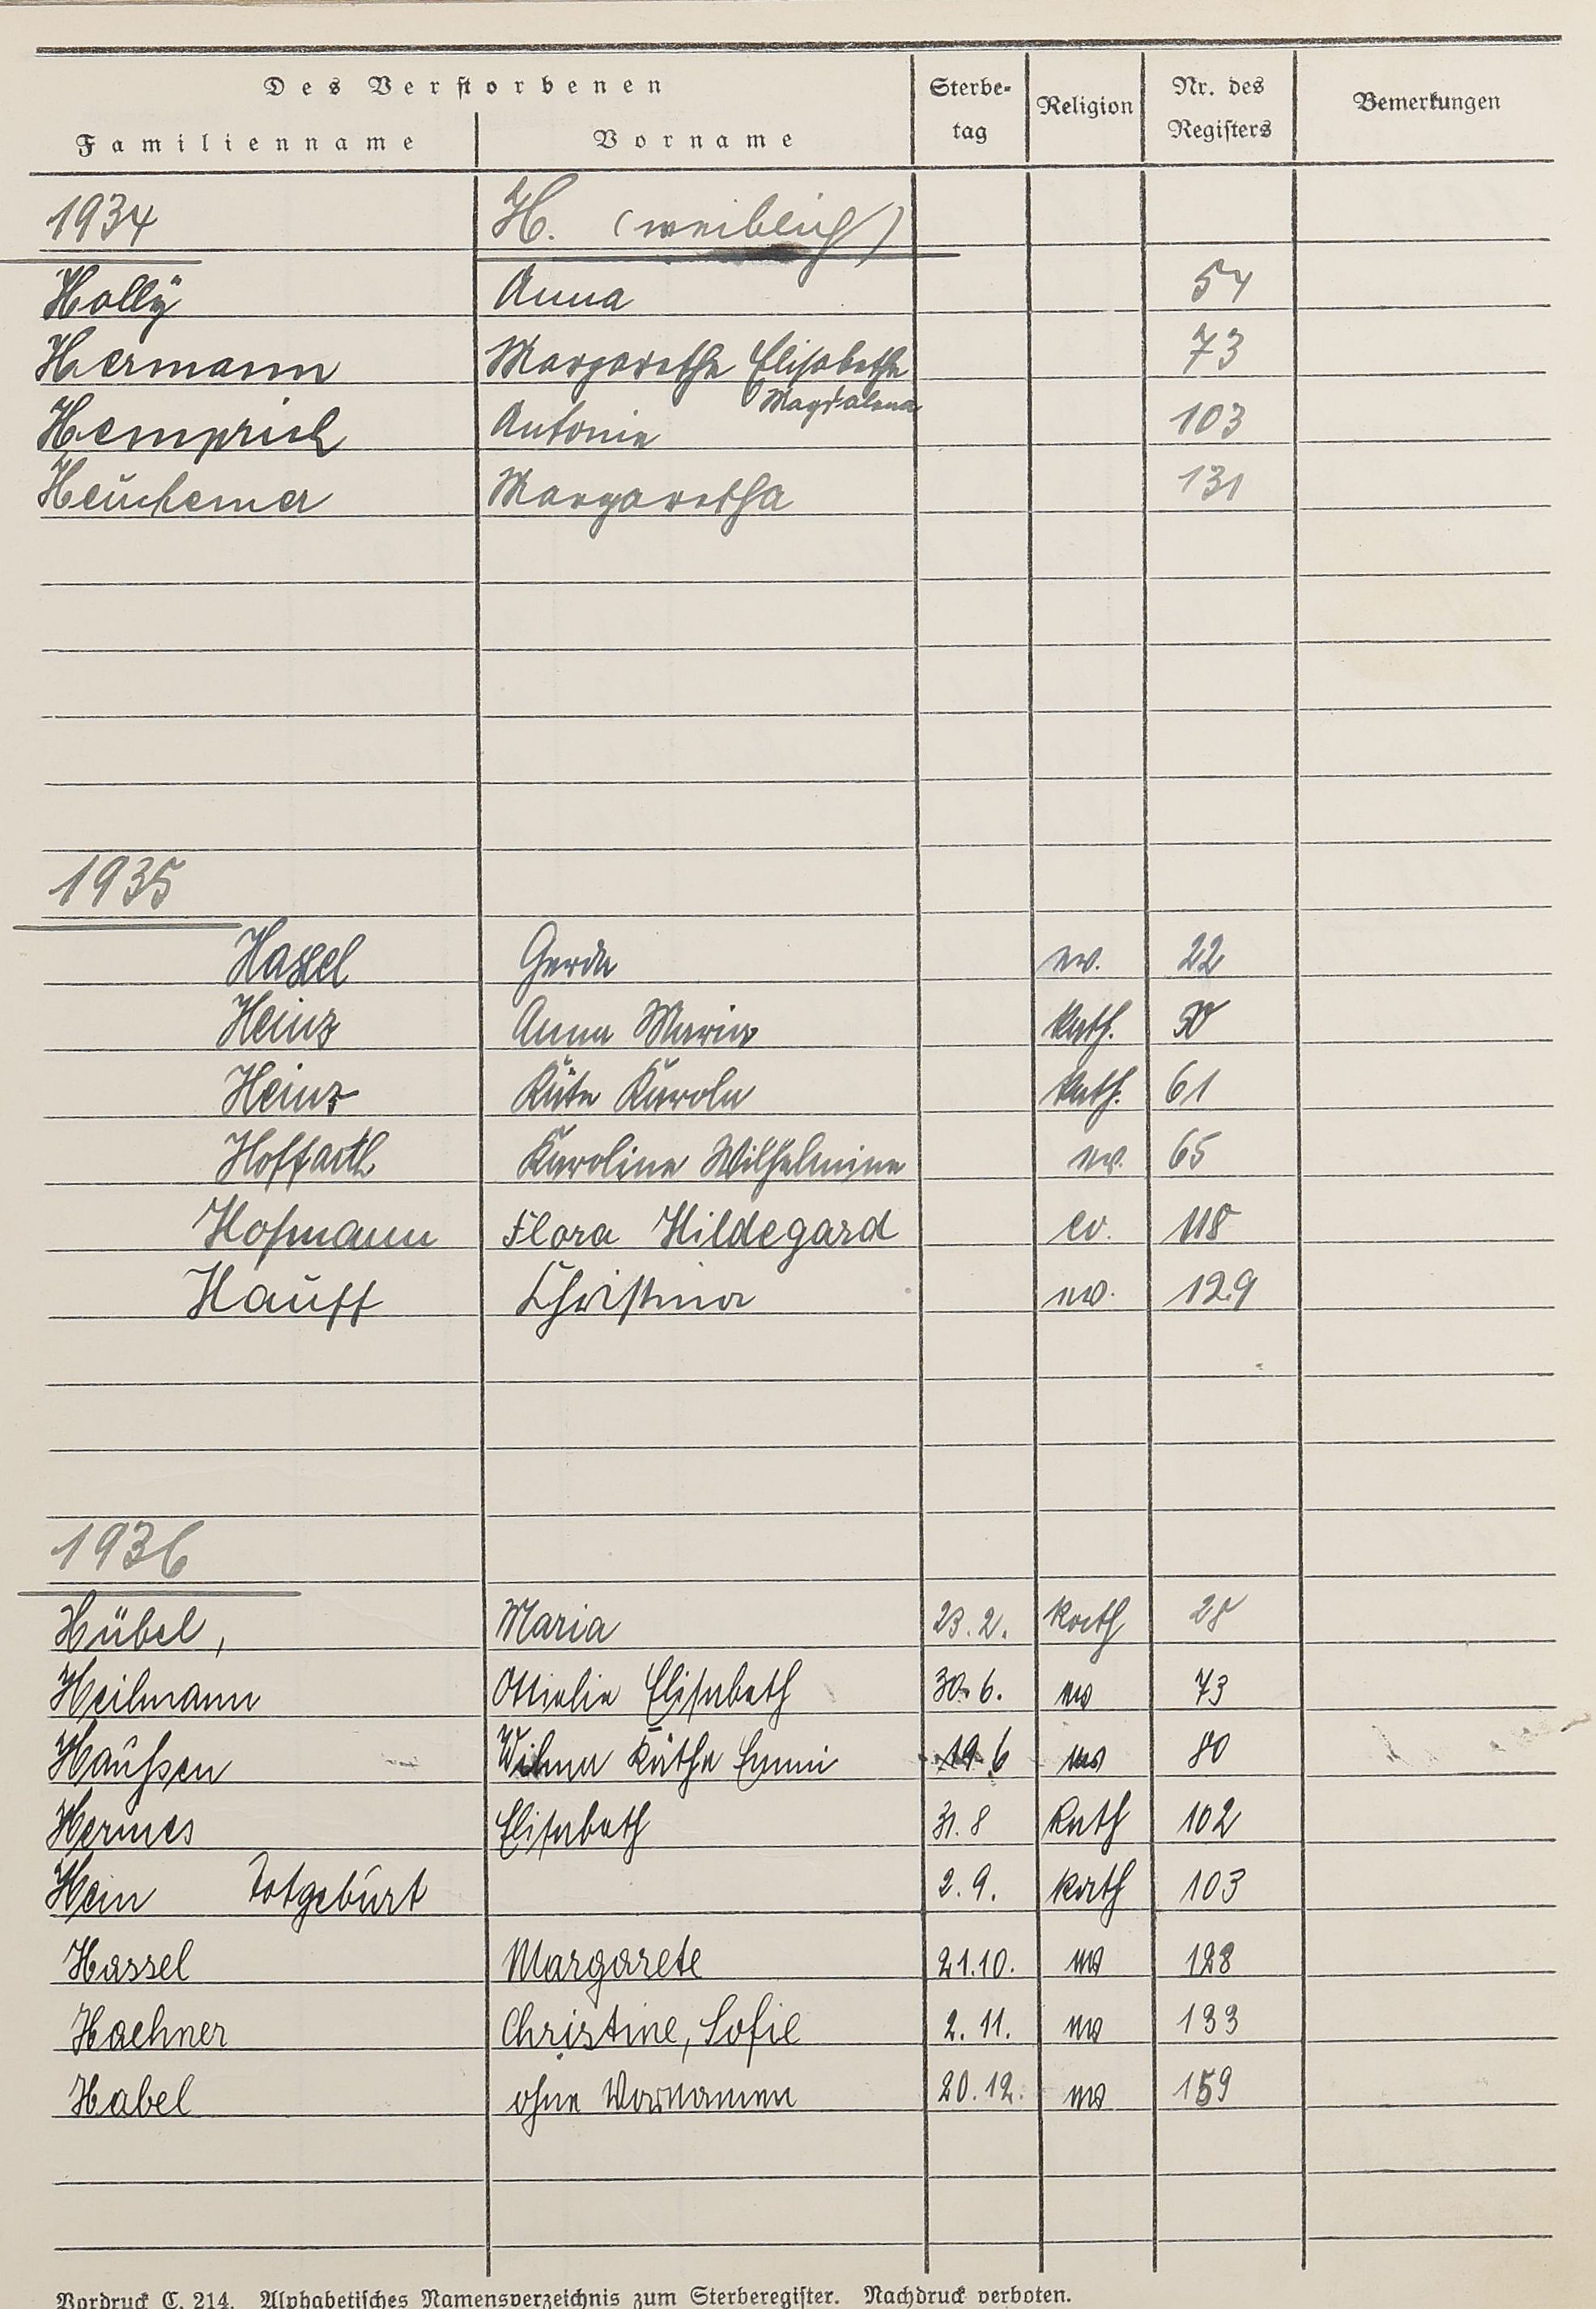 Des Verstorbenen
Familienname Vorname Sterbe-tag Religion Nr. des Registers Bemerkungen
1934 H. (weiblich)
Hollÿ Anna 54
Hermann Margarethe Elisabethe 73
Magdalena
Hemprich Antonie 103
Heuchemer Margaretha 131
1935
Hassel Gerda ev. 22
Heinz Anna Maria kath.
Heinz Käte Karola kath. 61
Hoffarth Karoline Wilhelmine ev. 65
Hofmann Flora Hildegard ev. 118
Hauff Christina ev. 129
1936
Hübel, Maria 23.2. kath 28
Heilmann Ottielie Elisabeth 30.6. ev 73
Haußen Wilma Käthe Emmi 19.6 ev 80
Hermes Elisabeth 31.8 kath 102
Hein Totgeburt 2.9. kath 103
Hassel Margarete 21.10. ev 128
Haehner Christine, Sofie 2.11. ev 133
Habel ohne Vornamen 20.12. ev 159
Vordruck C. 214. Alphabetisches Namensverzeichnis zum Sterberegister. Nachdruck verboten.